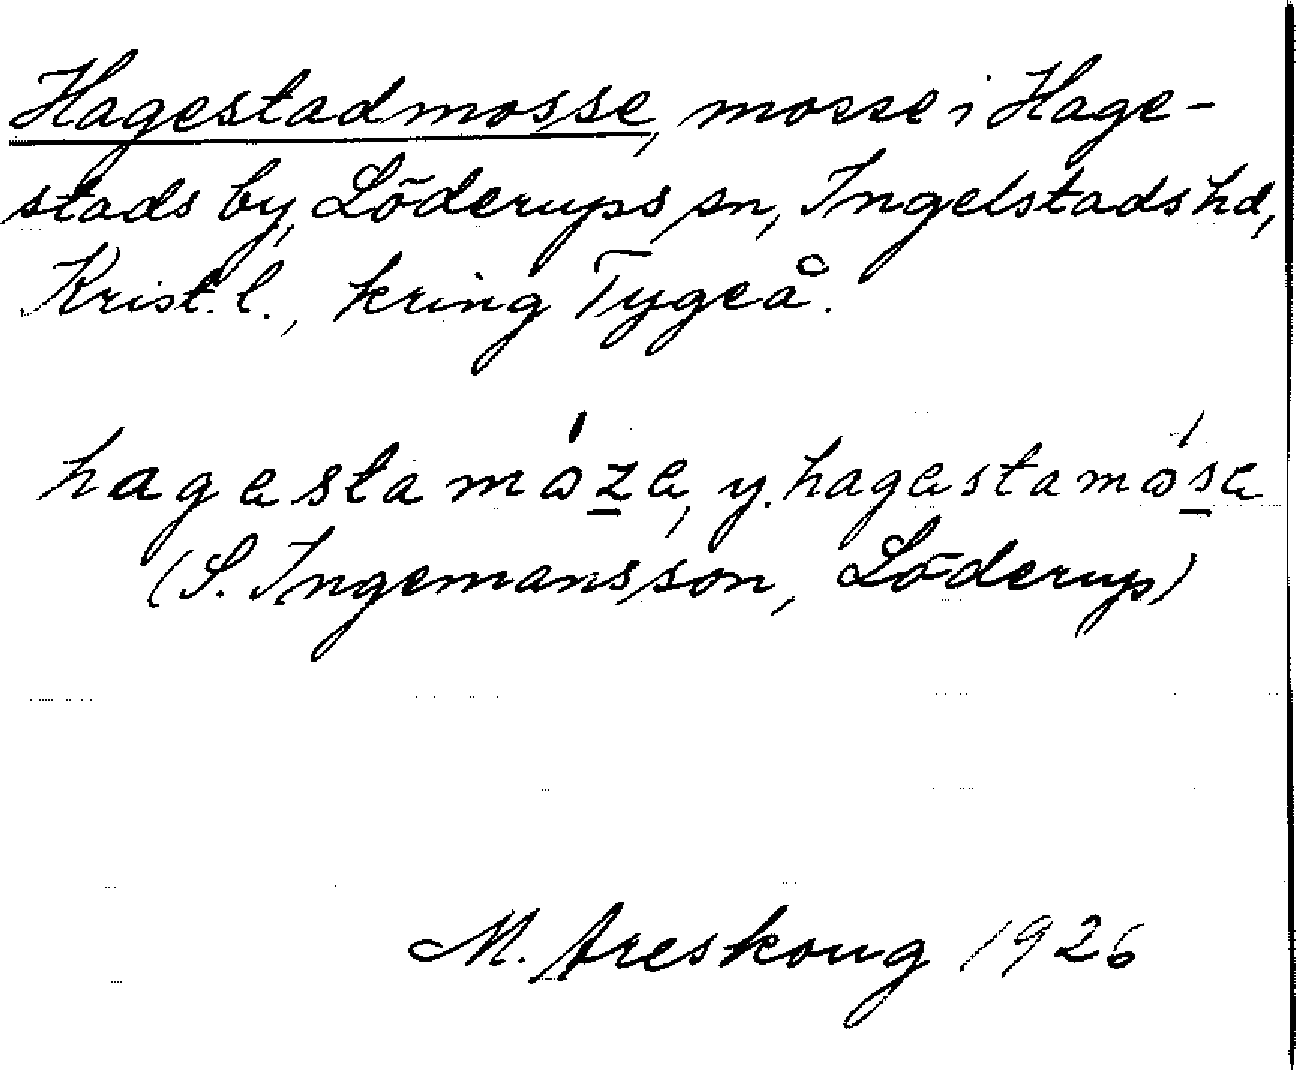 Hagestadmosse, mosse i Hage-
stads by, Löderups sn, Ingelstads hd,
Krist. l., kring Tygeå.
hagestamóze, y. hagestamóse
(S. Ingemansson, Löderup)
M. Areskoug 1926